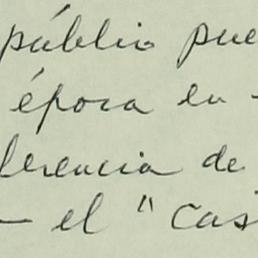 público pue
época en -
ferencia de
— el "cas